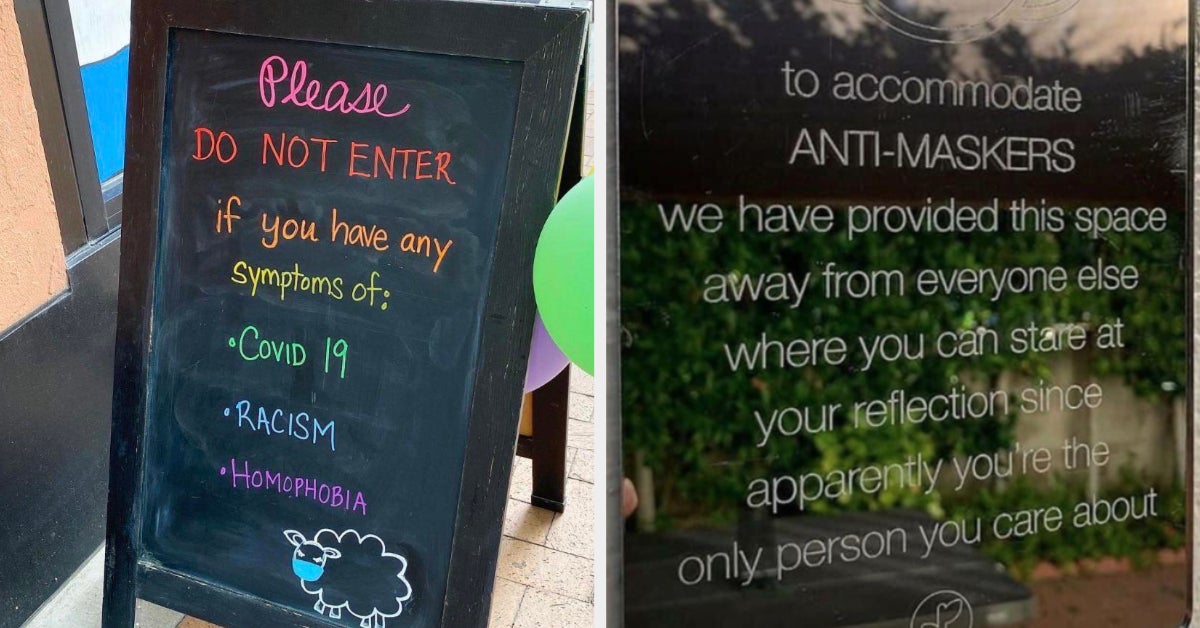 Please
DO NOT ENTER
if you have any
symptoms of:
•COVID 19
•RACISM
•HOMOPHOBIA
to accommodate
ANTI-MASKERS
we have provided this space
away from everyone else
where you can stare at
your reflection since
apparently you're the
only person you care about